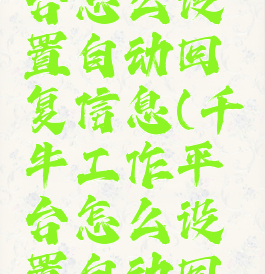 台怎么设
置自动回
复信息(千
牛工作平
台怎么设
置自动回